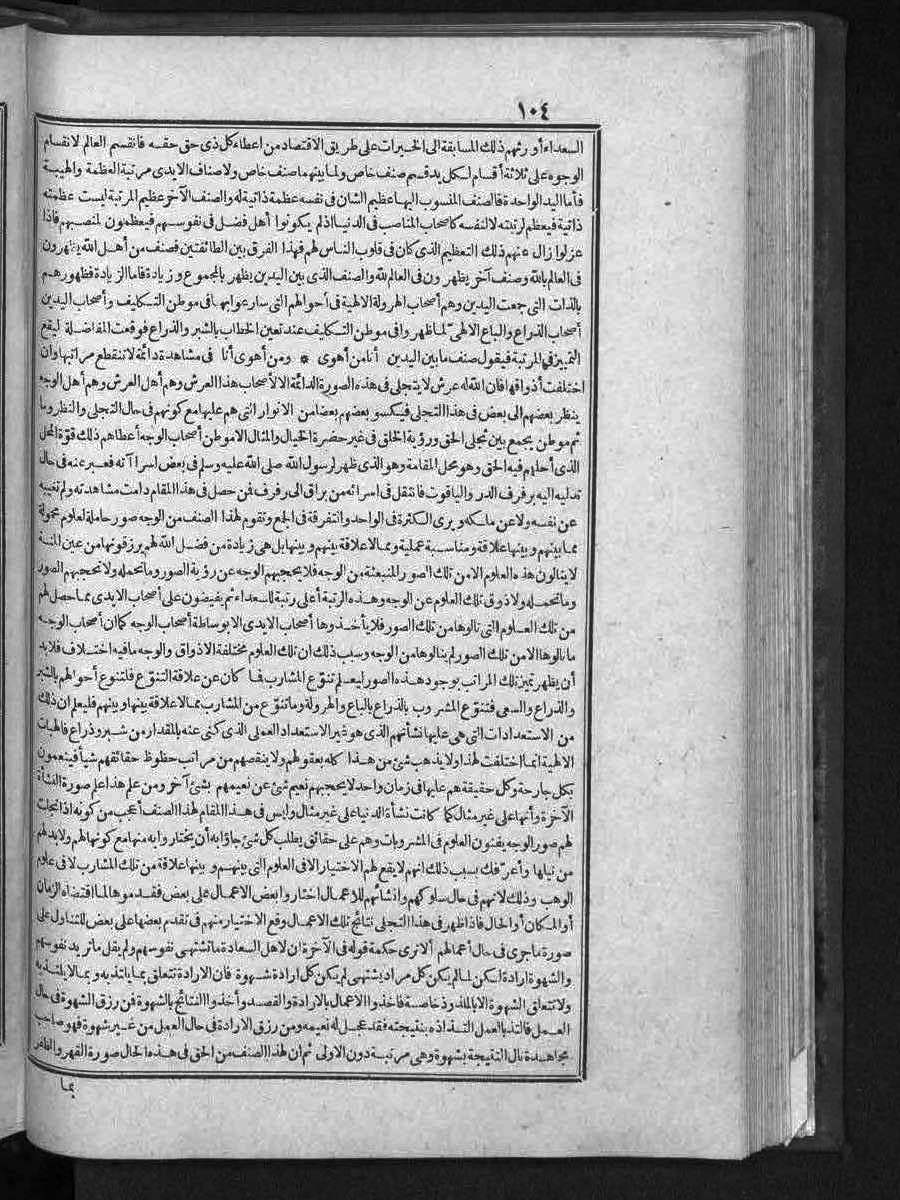 ١٠٤
السعداء أورثهم ذلك المسابقة الى الخيرات على طريق الاقتصاد من اعطاء كل ذى حق حقه فانقسم العالم لانقسام
الوجوه على ثلاثة أقسام لكل يد قسم صنف خاص ولما بينهما صنف خاص ولاصناف الايدى مرتبة العظمة والهيبة
فأما اليد الواحدة فالصنف المنسوب اليها عظيم الشان فى نفسه عظمة ذاتية له والصنف الآخر عظيم المرتبة ليست عظمته
ذاتية فيعظم لرتبته لا لنفسه كاصحاب المناصب فى الدنيا اذا لم يكونوا أهل فضل فى نفوسهم فيعظمون لمنصبهم فاذا
عزلوا زال عنهم ذلك التعظيم الذى كان فى قلوب الناس لهم فهذا الفرق بين الطائفتين فصنف من أهل الله يظهرون
فى العالم بالله وصنف آخر يظهرون فى العالم لله والصنف الذى بين اليدين يظهر بالمجموع وزيادة فاما الزيادة فظهورهم
بالذات التى جمعت اليدين وهم أصحاب الهرولة الالهية فى أحوالهم التى سارعوا بها فى موطن التكليف وأصحاب اليدين
أصحاب الذراع والباع الالهى لما ظهروا فى موطن التكليف عند تعين الخطاب بالشبر والذراع فوقعت المفاضلة ليقع
التمييز فى المرتبة فيقول صنف ما بين اليدين أنا من أهوى * ومن أهوى أنا فى مشاهدة دائمة لا تنقطع مراتبها وان
اختلفت أذواقها فان الله له عرش لا يتجلى فى هذه الصورة الدائمة الا لأصحاب هذا العرش وهم أهل العرش وهم أهل الوجه
ينظر بعضهم الى بعض فى هذا التجلى فيكسو بعضهم بعضا من الانوار التى هم عليها مع كونهم فى حال التجلى والنظر وما
ثم موطن يجمع بين تجلى الحق ورؤية الخلق فى غير حضرة الخيال والمثال الا موطن أصحاب الوجه أعطاهم ذلك قوة المحل
الذى أحلهم فيه الحق وهو محل المقامة وهو الذى ظهر لرسول الله صلى الله عليه وسلم فى بعض اسرا آته فعبر عنه فى حال
تدليه اليه برفرف الدر والياقوت فانتقل فى اسرائه من براق الى رفرف فمن حصل فى هذا المقام دامت مشاهدته ولم تغيبه
عن نفسه ولا عن ملكه ويرى الكثرة فى الواحد والتفرقة فى الجمع وتقوم لهذا الصنف من الوجه صور حاملة لعلوم محمولة
مما بينهم وبينها علاقة ومناسبة عملية ومما لا علاقة بينهم وبينها بل هى زيادة من فضل الله لهم يرزقونها من عين المنة
لا ينالون هذه العلوم الا من تلك الصور المنبعثة من الوجه فلا يحجبهم الوجه عن رؤية الصور وما تحمله ولا تحجبهم الصور
وما تحمله ولا ذوق تلك العلوم عن الوجه وهذه الرتبة أعلى رتبة للسعداء ثم يفيضون على أصحاب الايدى مما حصل لهم
من تلك العلوم التى نالوها من تلك الصور فلا يأخذوها أصحاب الايدى الا بوساطة أصحاب الوجه كما ان أصحاب الوجه
ما نالوها الا من تلك الصور لم ينالوها من الوجه وسبب ذلك ان تلك العلوم مختلفة الاذواق والوجه ما فيه اختلاف فلا بد
أن يظهر تميز تلك المراتب بوجود هذه الصور ليعلم تنوع المشارب فما كان عن علاقة التنوع فلتنوع أحوالهم بالشبر
والذراع والسعى فتنوع المشروب بالذراع بالباع والهرولة وما تنوع من المشارب مما لا علاقة بينها وبينهم فليعلم ان ذلك
من الاستعدادات التى هى عليها نشأتهم الذى هو غير الاستعداد العملى الذى كنى عنه بالمقدار من شبر وذراع فالهبات
الالهية انما اختلفت لهذا ولا يذهب شئ من هذا كله بعقولهم ولا ينقصهم من مراتب حظوظ حقائقهم شيأ فينعمون
بكل جارحة وكل حقيقة هم عليها فى زمان واحد لا يحجبهم نعيم شئ عن نعيمهم بشئ آخر ومن علم هذا علم صورة النشأة
الآخرة وأنها على غير مثال كما كانت نشأة الدنيا على غير مثال وليس فى هذا المقام لهذا الصنف أعجب من كونه اذا تجلت
لهم صور الوجه بفنون العلوم فى المشروبات وهم على حقائق يطلب كل شئ جاؤا به أن يختاروا به منها مع كونها لهم ولا بد لهم
من نيلها وأعرفك بسبب ذلك انهم لا يقع لهم الاختيار الا فى العلوم التى بينهم وبينها علاقة من تلك المشارب لا فى علوم
الوهب وذلك لانهم فى حال سلوكهم وانشائهم للاعمال اختاروا بعض الاعمال على بعض فقدموها لما اقتضاه الزمان
أو المكان أو الحال فاذا ظهر فى هذا التجلى نتائج تلك الاعمال وقع الاختيار منهم فى تقدم بعضها على بعض للتناول على
صورة ما جرى فى حال أعمالهم ألا ترى حكمة قوله فى الآخرة ان لاهل السعادة ما تشتهى نفوسهم ولم يقل ما تريد نفوسهم
والشهوة ارادة لكن لما لم يكن كل مراد يشتهى لم يكن كل ارادة شهوة فان الارادة تتعلق بما يلتذ به وبما لا يلتذ به
ولا تتعلق الشهوة الا بالملذوذ خاصة فاخذوا الاعمال بالارادة والقصد وأخذوا النتائج بالشهوة فمن رزق الشهوة فى حال
العمل فالتذ بالعمل التذاذه بنتيجته فقد عجل له نعيمه ومن رزق الارادة فى حال العمل من غير شهوة فهو صاحب
مجاهدة نال النتيجة بشهوة وهى مرتبة دون الاولى ثم ان لهذا الصنف من الحق فى هذه الحال صورة القهر والظفر
بما